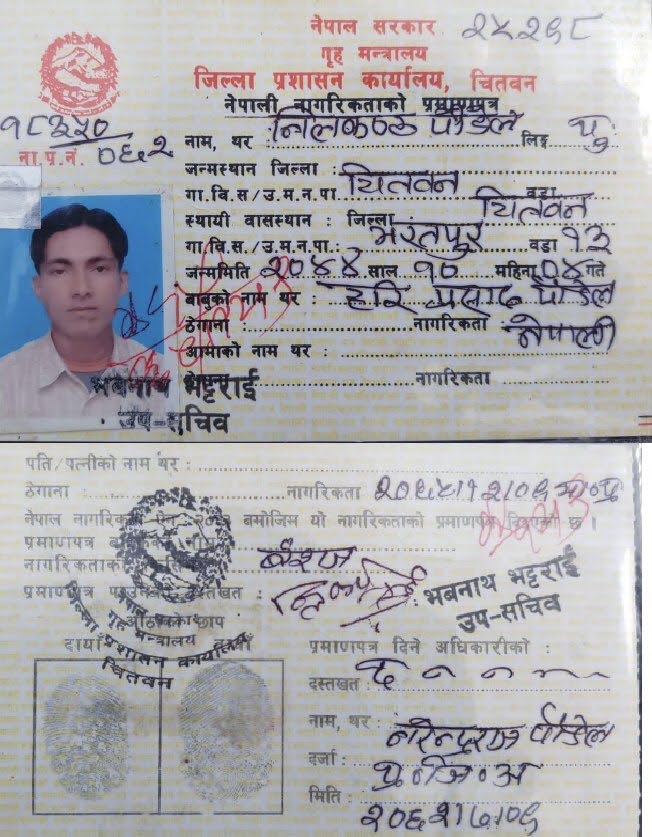 नेपाल सरकार २५२९८
गृह मन्त्रालय
जिल्ला प्रशासन कार्यालय, चितवन
नेपाली नागरिकताको प्रमाणपत्र
१८३२०
ना.प.नं. ०६२
नाम, थर : निलकण्ठ पौडेल लिङ्ग पु
जन्मस्थान जिल्ला :
गा.वि.स/उ.म.न.पा चितवन वडा
स्थायी वासस्थान : जिल्ला चितवन
गा.वि.स./उ.म.न.पा.: भरतपुर वडा १३
जन्ममिति २०४४ साल १० महिना ०४ गते
बाबुको नाम थर : हरि प्रसाद पौडेल
ठेगाना : नागरिकता : नेपाली
आमाको नाम थर :
नागरिकता
भबनाथ भट्टराई
उप-सचिव
पति/पत्नीको नाम थर :
ठेगाना नागरिकता
नेपाल नागरिकता बमोजिम यो नागरिकताको प्रमाणपत्र
प्रमाणपत्र
नागरिकताको बंशज
प्रमाणपत्र दस्तखत :
भबनाथ भट्टराई
उप-सचिव
नेपाल सरकार
गृह मन्त्रालय
जिल्ला प्रशासन कार्यालय
चितवन
औंठाको छाप
दायाँ बायाँ
प्रमाणपत्र दिने अधिकारीको :
दस्तखत :
नाम, थर : नरेन्द्रराज पौडेल
दर्जा : प्र॰जि॰अ
मिति : २०६२।७।०९